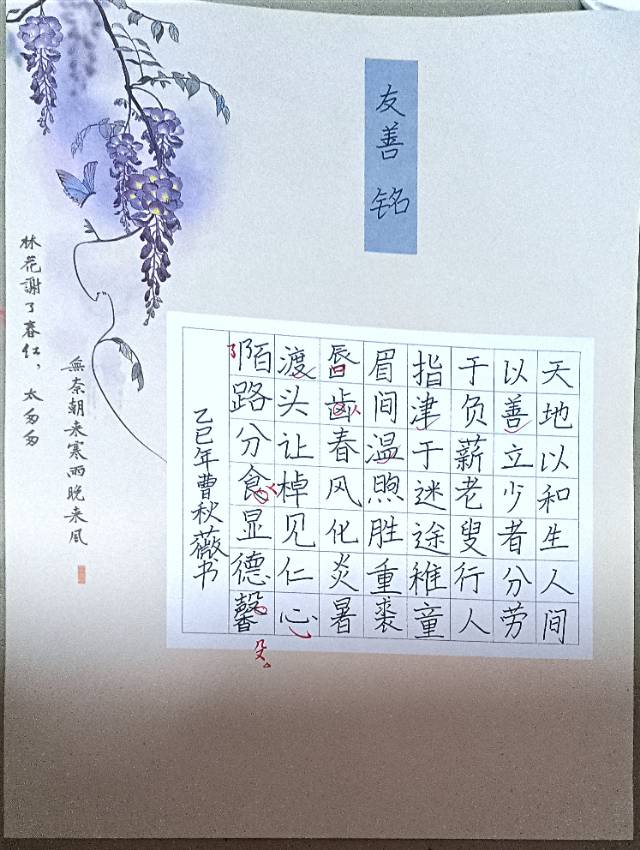 友善铭
天地以和生人间
以善立少者分劳
于负薪老叟行人
指津于迷途稚童
眉间温煦胜重裘
唇齿春风化炎暑
渡头让棹见仁心
陌路分食显德馨
乙巳年曹秋薇书
林花謝了春红，太匆匆
無奈朝来寒雨晚来风